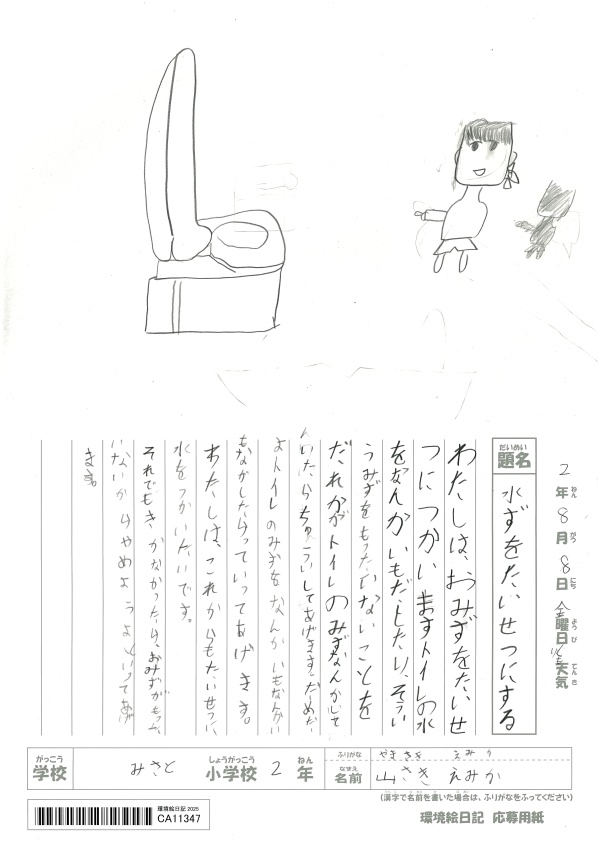 2年8月8日金曜日天気
ねん がつ にち ようび てんき
だいめい
題名 水ずをたいせつにする
わたしは、おみずをたいせ
つに つかいますトイレの水
をなんかいもだしたり、そうい
うみずをもったいないことを
だれかがトイレのみずなんかして
んいたらちゅういしてあげます。だーめだ
よトイレのみずを なんかいもなん
もながしたらっていってあげます。
わたしは、これからもたいせつに、
水をつかいたいです。
それでもきかなかったら、おみずがもった
いないからやめようよといってあげ
ます。
がっこう
学校 みさと 小学校 2年
しょうがっこう ねん
ふりがな やまさき えみか
なまえ
名前 山さき えみか
(漢字で名前を書いた場合は、ふりがなをふってください)
環境絵日記2025
CA11347
環境絵日記 応募用紙